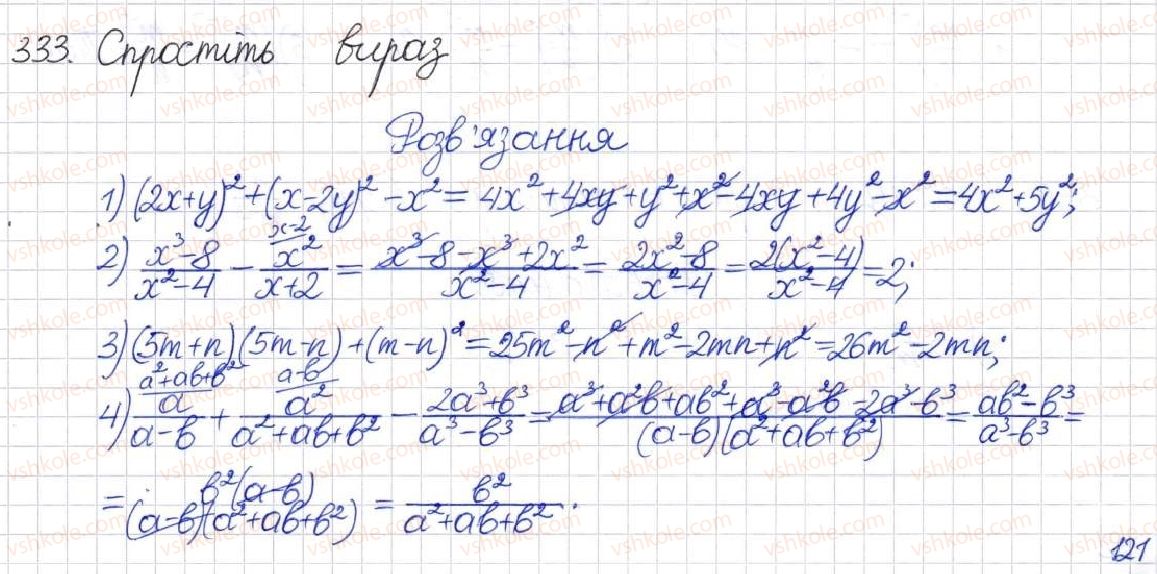 333. Спростіть вираз
Розв'язання
1) (2x+y)²+(x-2y)²-x²=4x²+4xy+y²+x²-4xy+4y²-x²=4x²+5y²;
2) (x³-8)/(x²-4) - x-2/ x²/(x+2) = (x³-8-x³+2x²)/(x²-4) = (2x²-8)/(x²-4) = 2(x²-4)/(x²-4) = 2;
3) (5m+n)(5m-n)+(m-n)²=25m²-n²+m²-2mn+n²=26m²-2mn;
4) a²+ab+b²/ a/(a-b) + a-b/ a²/(a²+ab+b²) - (2a³+b³)/(a³-b³) = (a³+a²b+ab²+a³-a²b-2a³-b³)/((a-b)(a²+ab+b²)) = (ab²-b³)/(a³-b³) =
= b²(a-b)/((a-b)(a²+ab+b²)) = b²/(a²+ab+b²).
121
vshkole.com